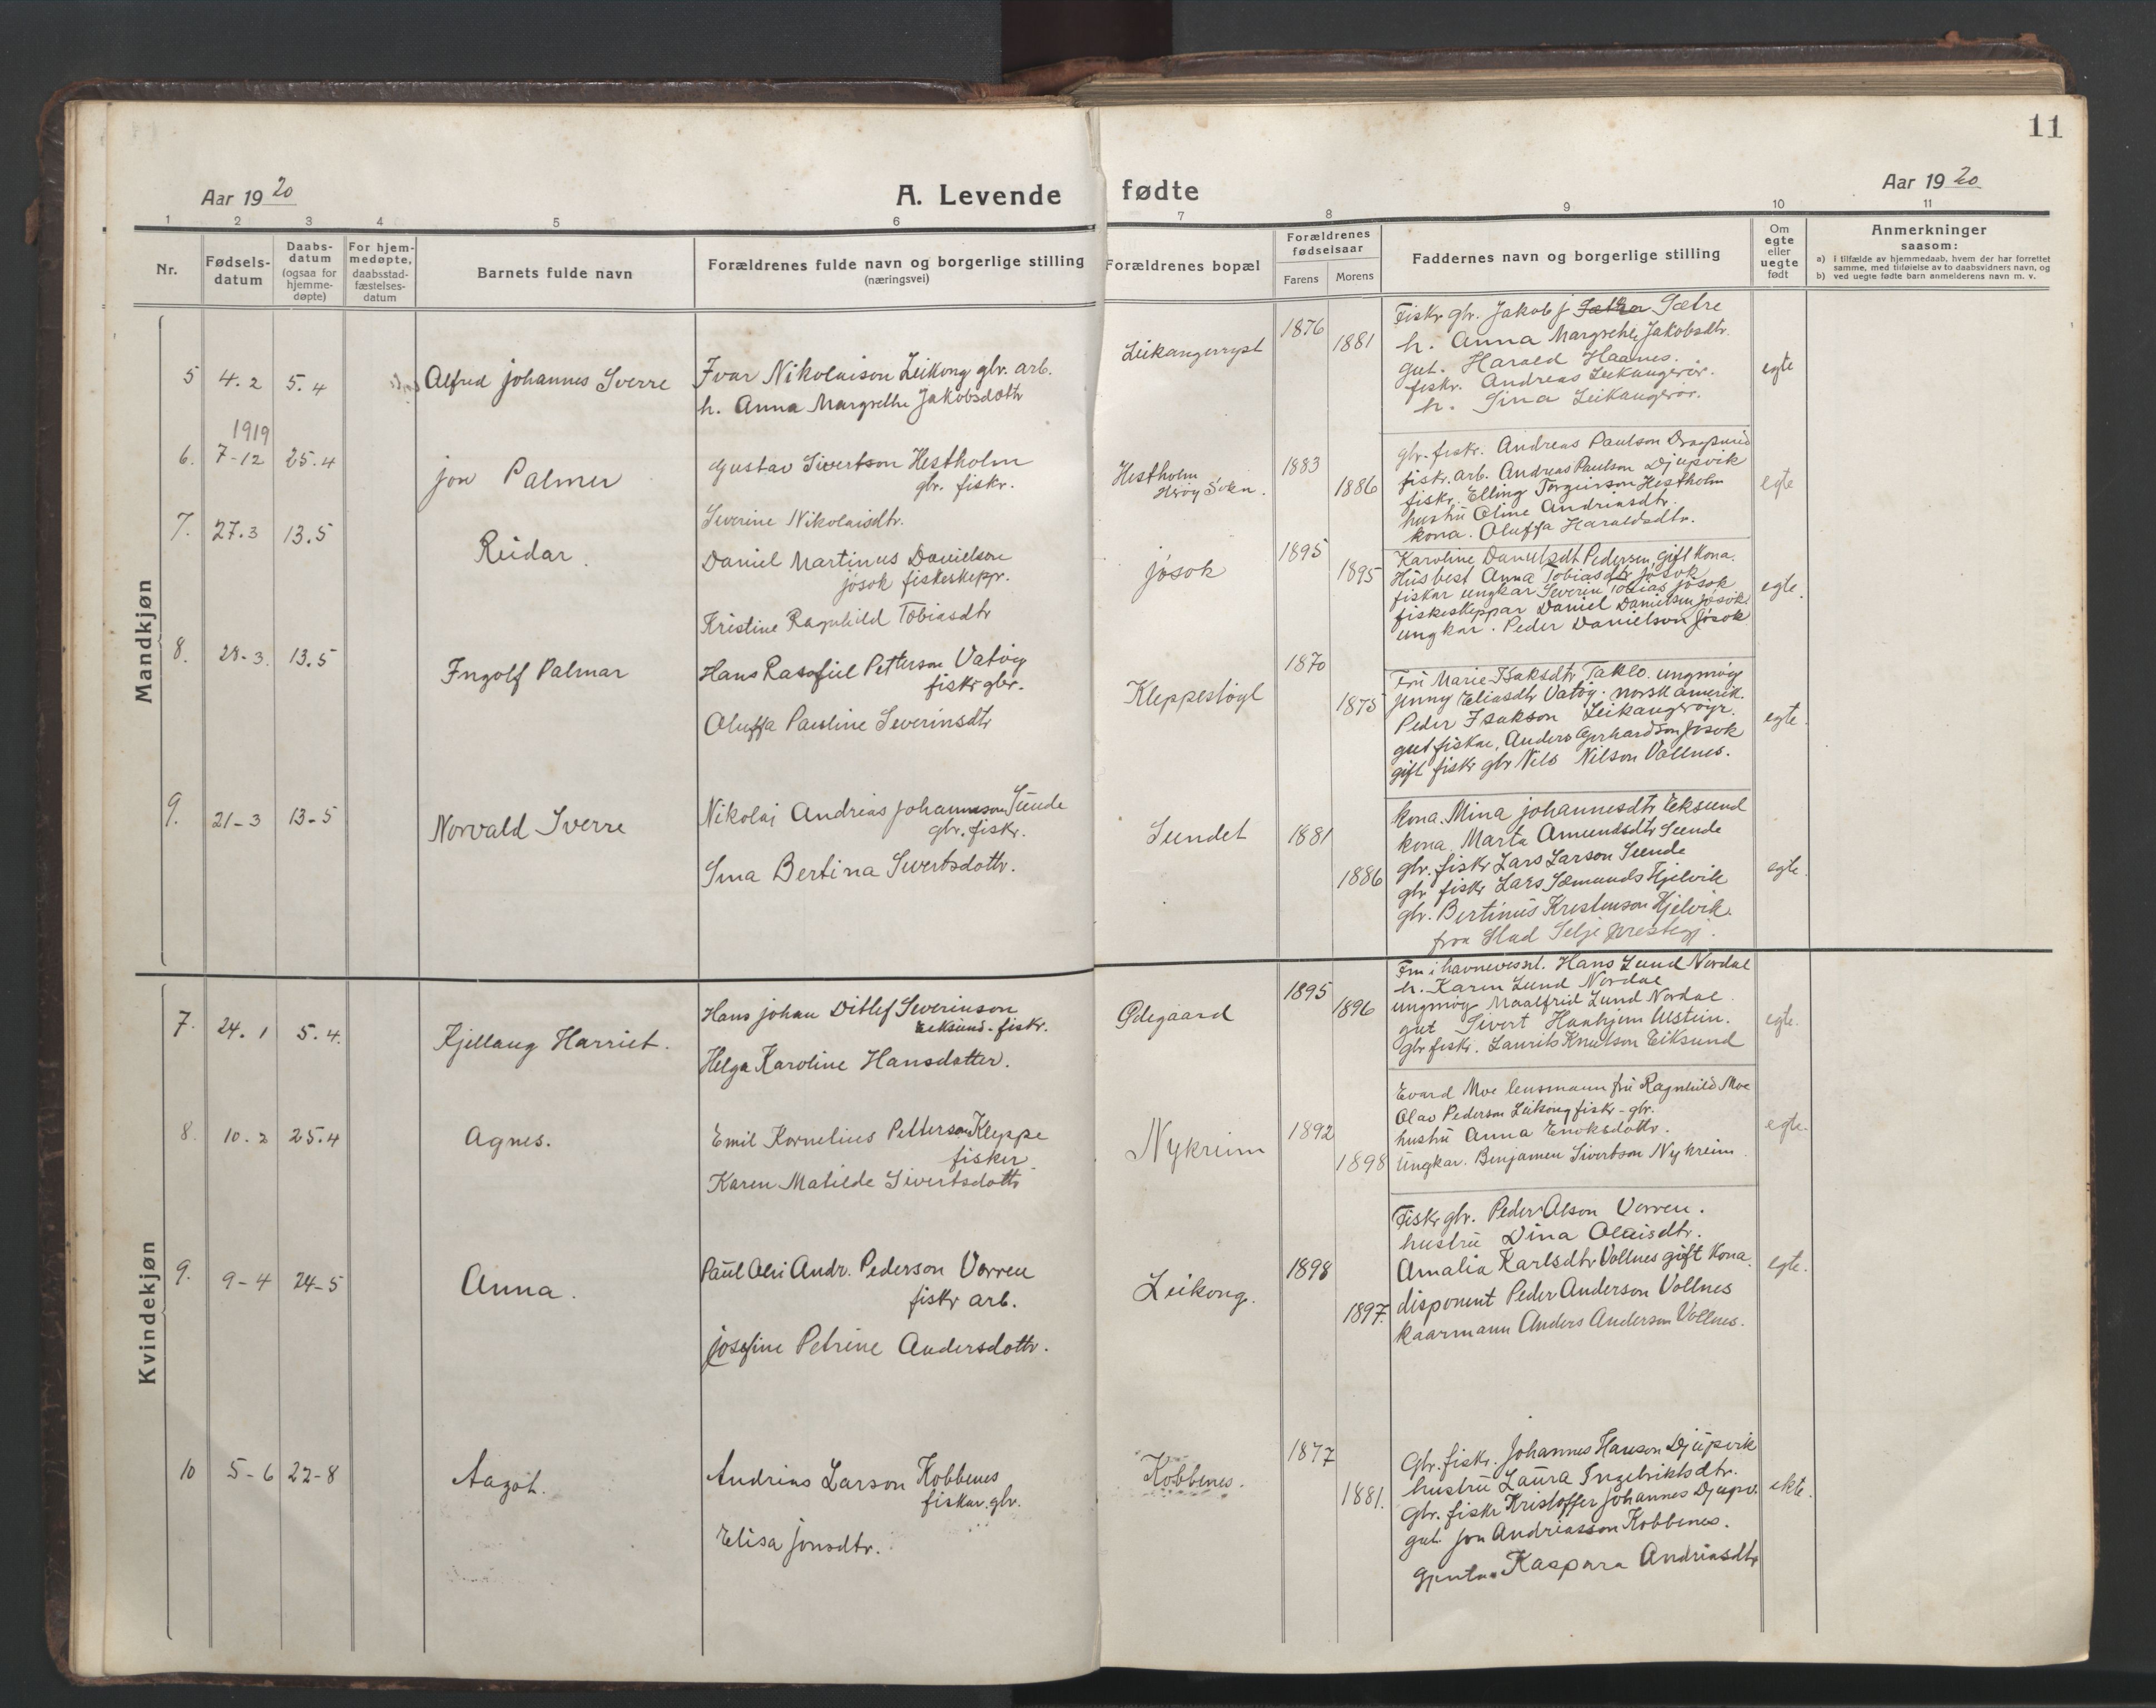 11
Aar 1920
A. Levende fødte
Aar 1920
1 2 3 4 5 6 7 8 9 10 11
Nr.
Fødsels-
datum
Daabs-
datum
(ogsaa for
hjemme-
døpte)
For hjem-
medøpte,
daabsstad-
fæstelses-
datum
Barnets fulde navn
Forældrenes fulde navn og borgerlige stilling
(næringsvei)
Forældrenes bopæl
Forældrenes
fødselsaar
Farens Morens
Faddernes navn og borgerlige stilling
Om
egte
eller
uegte
født
Anmerkninger
saasom:
a) i tilfælde av hjemmedaab, hvem der har forrettet
samme, med tilføielse av to daabsvidners navn, og
b) ved uegte fødte barn anmelderens navn m. v.
Mandkjøn
5 4.2 5.4
Alfred Johannes Sverre
Ivar Nikolaison Leikong gbr. arb.
h. Anna Margrethe Jakobsdottr
1876
1881
Fiskr gbr. Jakob J Sætre
h. Anna Margrethe Jakobsdtr.
gut. Harald Haanes.
fiskr. Andreas Leikangerør.
h. Sina Leikangerør.
egte
1919
6. 7-12 25.4
Jon Palmer
Gustav Sivertson Hestholm
gbr. fiskr.
Severine Nikolaisdtr.
Hestholm
Herøy Sokn.
1883
1886
gbr. fiskr. Andreas Paulson Dragsund
fiskr. arb. Andreas Paulson Djupvik
fiskr. Elling Torgeirson Hestholm
hustru Oline Andriasdtr.
kona. Oluffa Haraldsdtr.
egte
7. 27.3 13.5
Reidar.
Daniel Martinus Danielson
Jøsok fiskeskippr.
Kristine Ragnhild Tobiasdtr
Jøsok
1895
1895
Karoline Danielsdt Pedersen, gift kona.
Husbest Anna Tobiasdtr Jøsok
fiskar ungkar Severin Tobias Jøsok
fiskeskippar Daniel Danielsen Jøsok
ungkar. Peder Danielson Jøsok
egte.
8. 28-3. 13.5
Ingolf Palmar
Hans Rasofiel Petterson Vatøy
fiskr gbr.
Oluffa Pauline Severinsdtr
Kleppestøyl
1870
1875
Fru Marie Isaksdtr Taklo. ungmøy
Jenny Eliasdtr Vatøy. norsk amerik.
Peder Isakson Leikangerøyr.
gut fiskar, Anders Gerhardson Jøsok
gift fiskr gbr Nils Nilson Vallnes.
egte.
9. 21-3 13-5
Norvald Sverre
Nikolai Andreas Johannesson Sunde
gbr. fiskr.
Sina Bertina Sivertsdottr.
Sundet
1881
1886
kona. Mina Johannesdtr Eeksund
kona. Marta Amundsdtr Sunde
gbr. fiskr Lars Larson Sunde
gbr fiskr Lars Sæmunds Hjelvik
gbr. Bertinus Kristenson Hjelvik.
fraa Stad Selje prestegj.
egte.
Kvindekjøn
7. 24.1 5.4.
Kjellaug Harriet.
Hans Johan Ditlef Severinson
Eeksund - fiskr.
Helga Karoline Hansdatter.
Ødegaard
1895
1896
Fm i havnevesnt. Hans Lund Nordal
h. Karen Lund Nordal
ungmøy Maalfrid Lund Nordal.
gut Sivert Hanhjem Ulstein.
gbr fiskr. Laurits Knutson Eiksund
egte.
8. 10.2 25.4
Agnes.
Emil Kornelius Petterson Kleppe
fisker
Karen Matilde Sivertsdottr
Nykreim
1892
1898
Evard Moe lensmann fru Ragnhild Moe
Olav Pederson Leikong fiskr - gbr.
hustru Anna Enoksdottr.
Ungkar. Benjamen Sivertson Nykreim.
egte.
9. 9-4 24-5
Anna.
Paul Andr. Pederson Vorren
fiskr arb.
Josefine Petrine Andersdottr.
Leikong.
1898
1897.
Fiskr gbr. Peder Olson Vorren.
hustru Dina Olaisdtr.
Amalia Karlsdtr Vollnes gift kona.
disponent Peder Anderson Vollnes
kaarmann Anders Anderson Vollnes.
egte.
10 5-6 22-8
Aagot.
Andrias Larson Kobbenes
fiskar. gbr.
Elisa Jonsdtr.
Kobbenes.
1877
1881.
Gbr. fiskr. Johannes Hanson Djupvik
hustru Laura Ingebriktsdtr.
Gbr. fiskr Kristoffer Johannes Djupv.
gut Jon Andriasson Kobbenes.
Gjenta. Kaspara Andriasdtr
ekte.